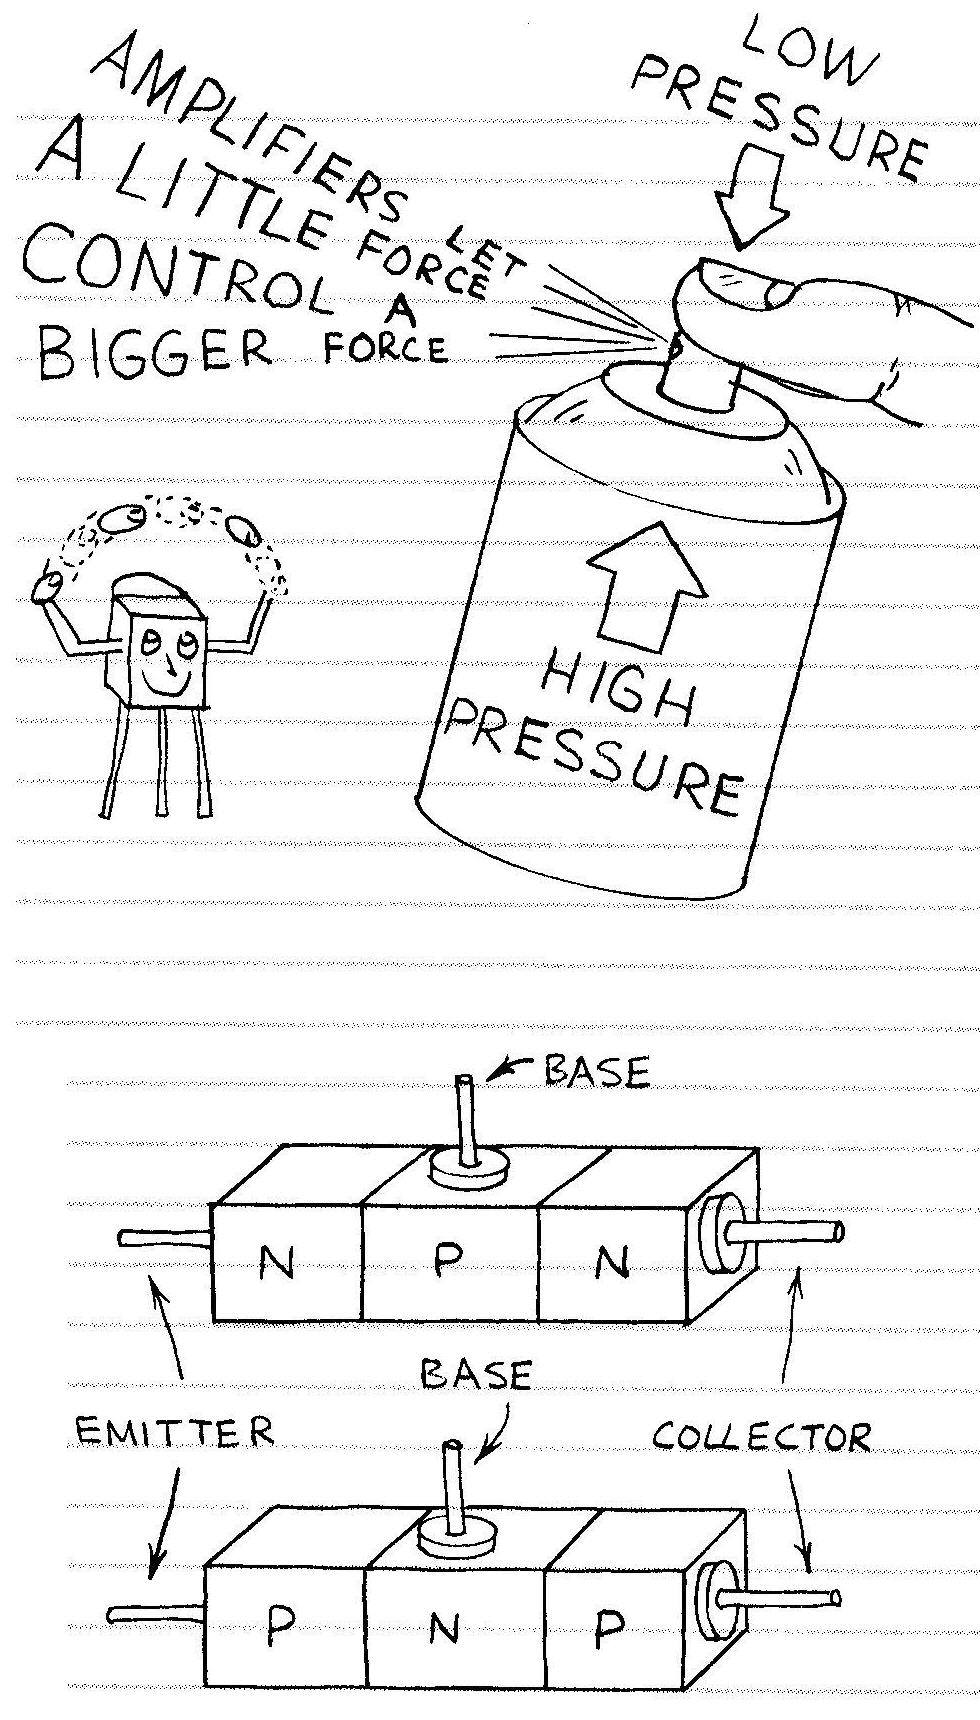 AMPLIFIERS LET
A LITTLE FORCE
CONTROL A
BIGGER FORCE
LOW
PRESSURE
HIGH
PRESSURE
BASE
N P N
BASE
EMITTER
COLLECTOR
P N P